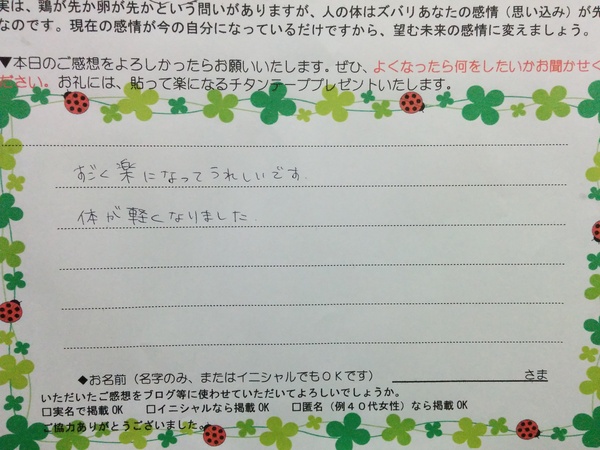 実は、鶏が先か卵が先かという問いがありますが、人の体はズバリあなたの感情（思い込み）が先
なのです。現在の感情が今の自分になっているだけですから、望む未来の感情に変えましょう。
▼本日のご感想をよろしかったらお願いいたします。ぜひ、よくなったら何をしたいかお聞かせく
ださい。お礼には、貼って楽になるチタンテーププレゼントいたします。
すごく楽になってうれしいです。
体が軽くなりました。
◆お名前（名字のみ、またはイニシャルでもOKです） さま
いただいたご感想をブログ等に使わせていただいてよろしいでしょうか。
□実名で掲載OK □イニシャルなら掲載OK □匿名（例４０代女性）なら掲載OK
ご協力ありがとうございました。